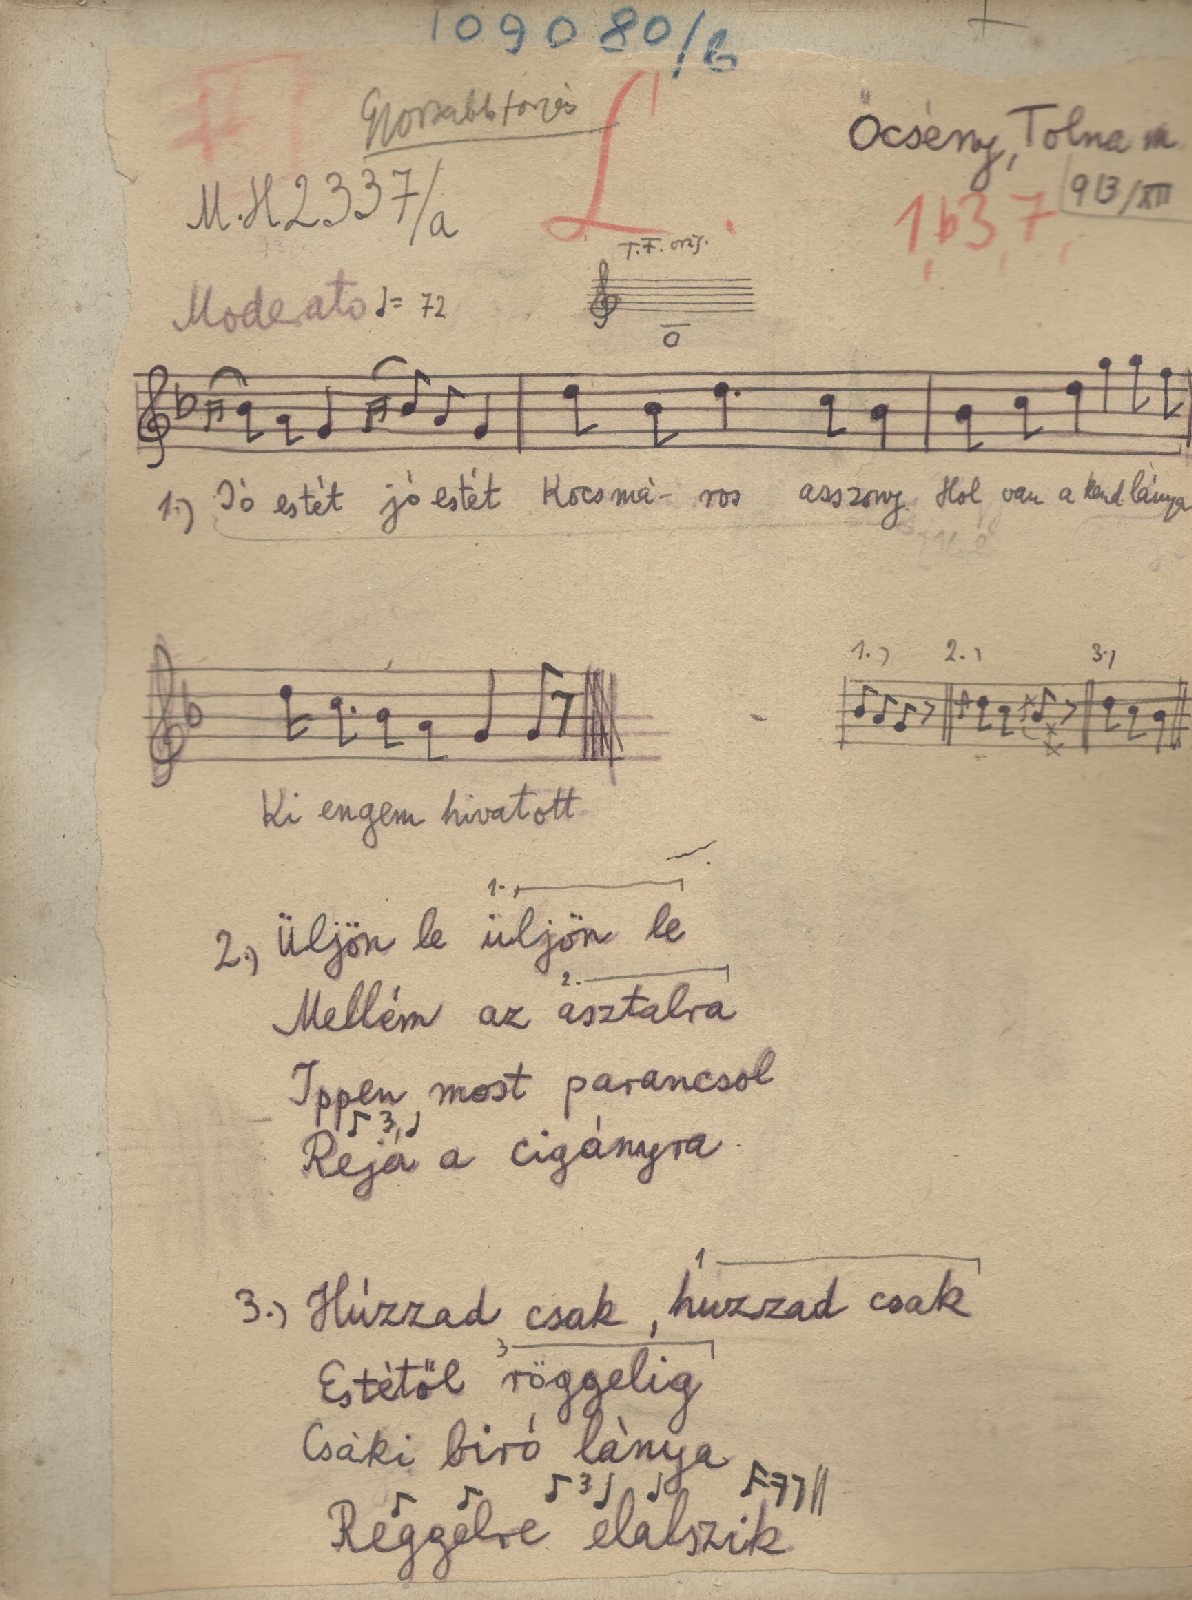 109080/b
L.
Őcsény, Tolna m.
M.H 2337/a
913/XII
1637,
T.F. orig.
Moderato ♩= 72
1.) Jó estét jó estét Kocsmá- ros asszony Hol van a kend lánya
1.) 2.) 3.)
Ki engem hivatott
1.
2.) Üljön le üljön le
2.
Mellém az asztalra
Ippen most parancsol
3
Rejá a cigányra.
1
3.) Húzzad csak, huzzad csak
3
Estétől röggelig
Csáki biró lánya
3
Reggelre elalszik